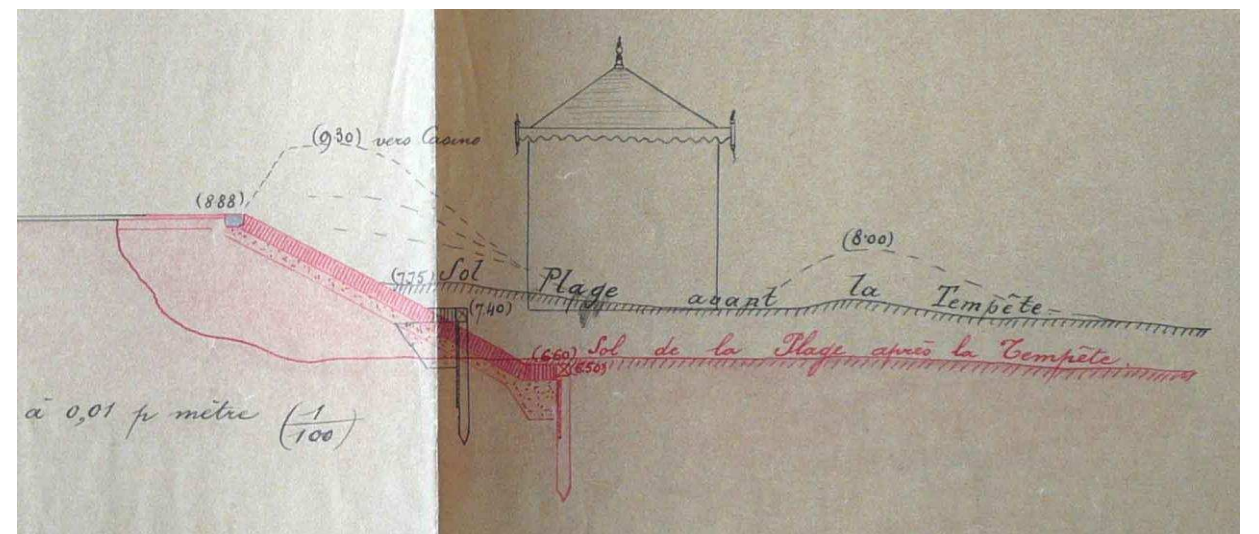 (9.30) vers Casino
(8.88)
(8.00)
(7.75) Sol Plage avant la Tempête
(7.40)
(6.60) Sol de la Plage après la Tempête
(6.50)
à 0,01 p mètre (1/100)